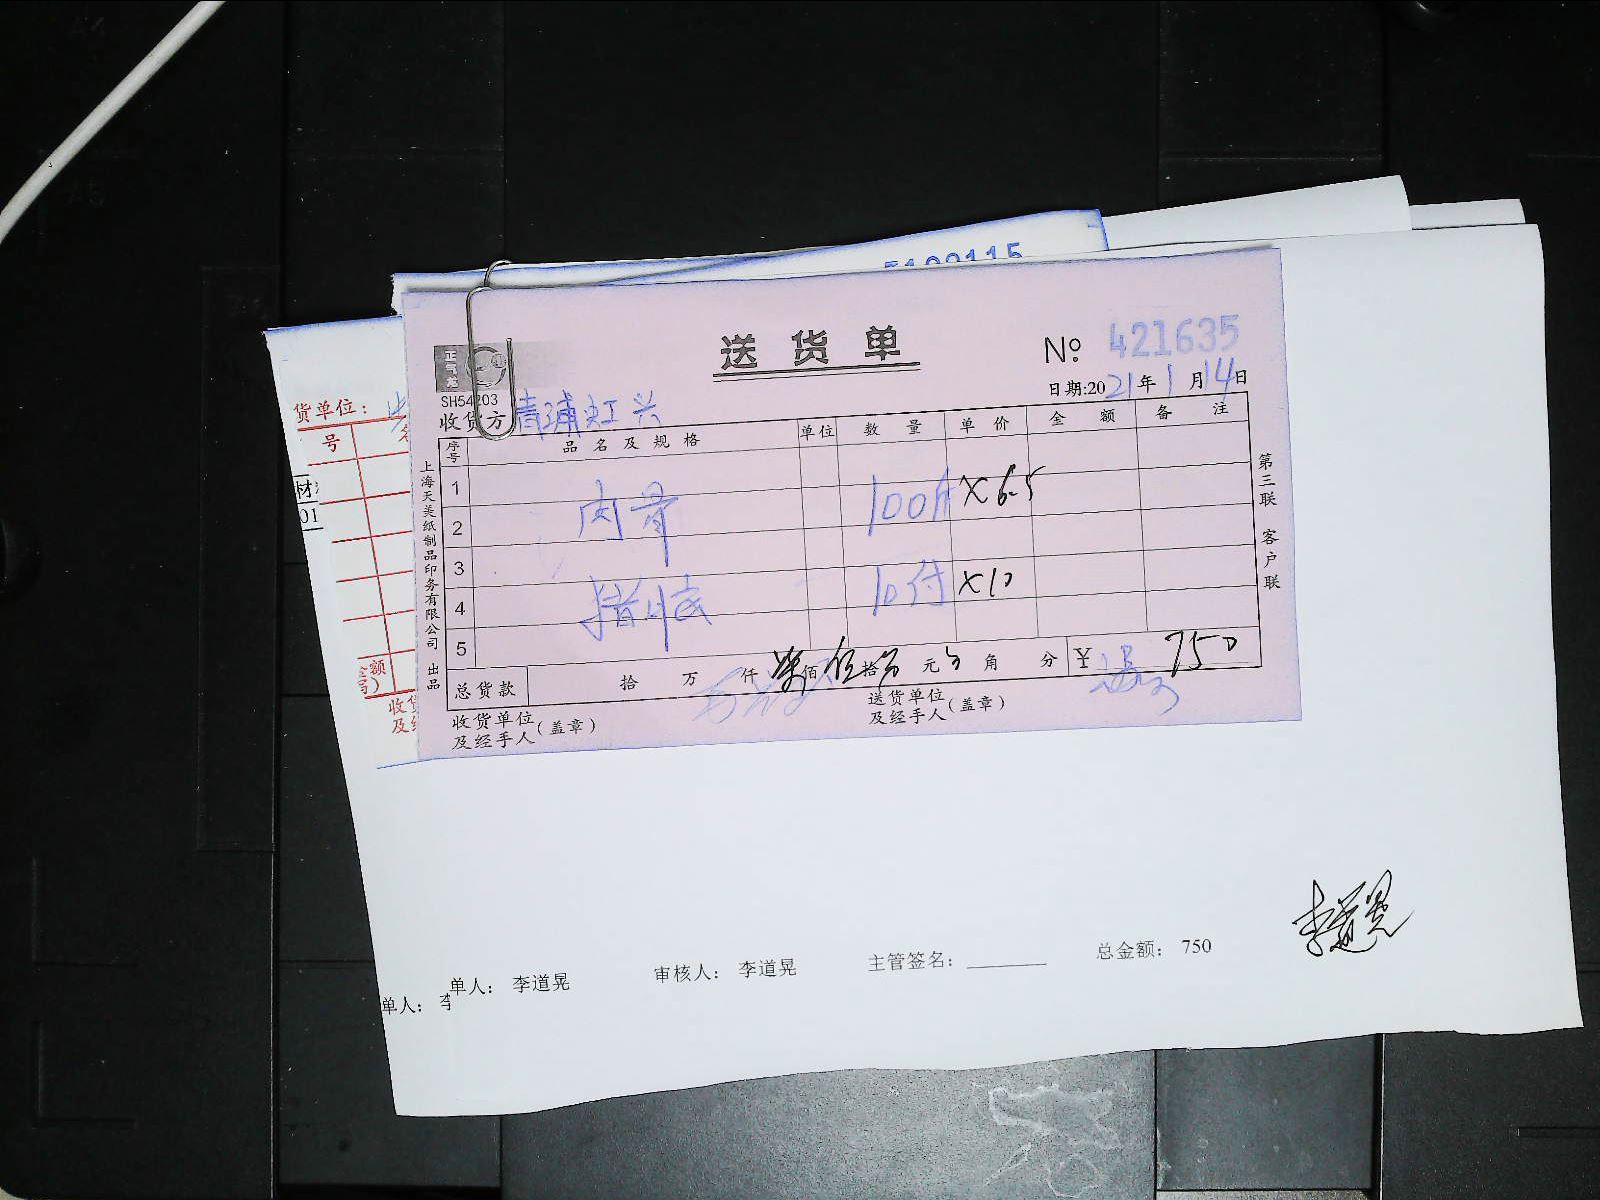 5100115
送货单
正气龙
SH54203
№ 421635
日期:2021年1月14日
收货方 青浦虹兴
序号 品名及规格 单位 数量 单价 金额 备注
1
肉骨 100斤 ×6.5
2
3
10付 ×10
4
5
总货款 拾 万 仟 柒佰伍拾 元 角 分 ¥ 750
收货单位及经手人(盖章)
送货单位及经手人(盖章)
上海天美纸制品印务有限公司 出品
第三联 客户联
货单位:
号
材
01
金额
收货
及经
单人: 李道晃 审核人: 李道晃 主管签名: 总金额: 750
单人: 李
李道晃